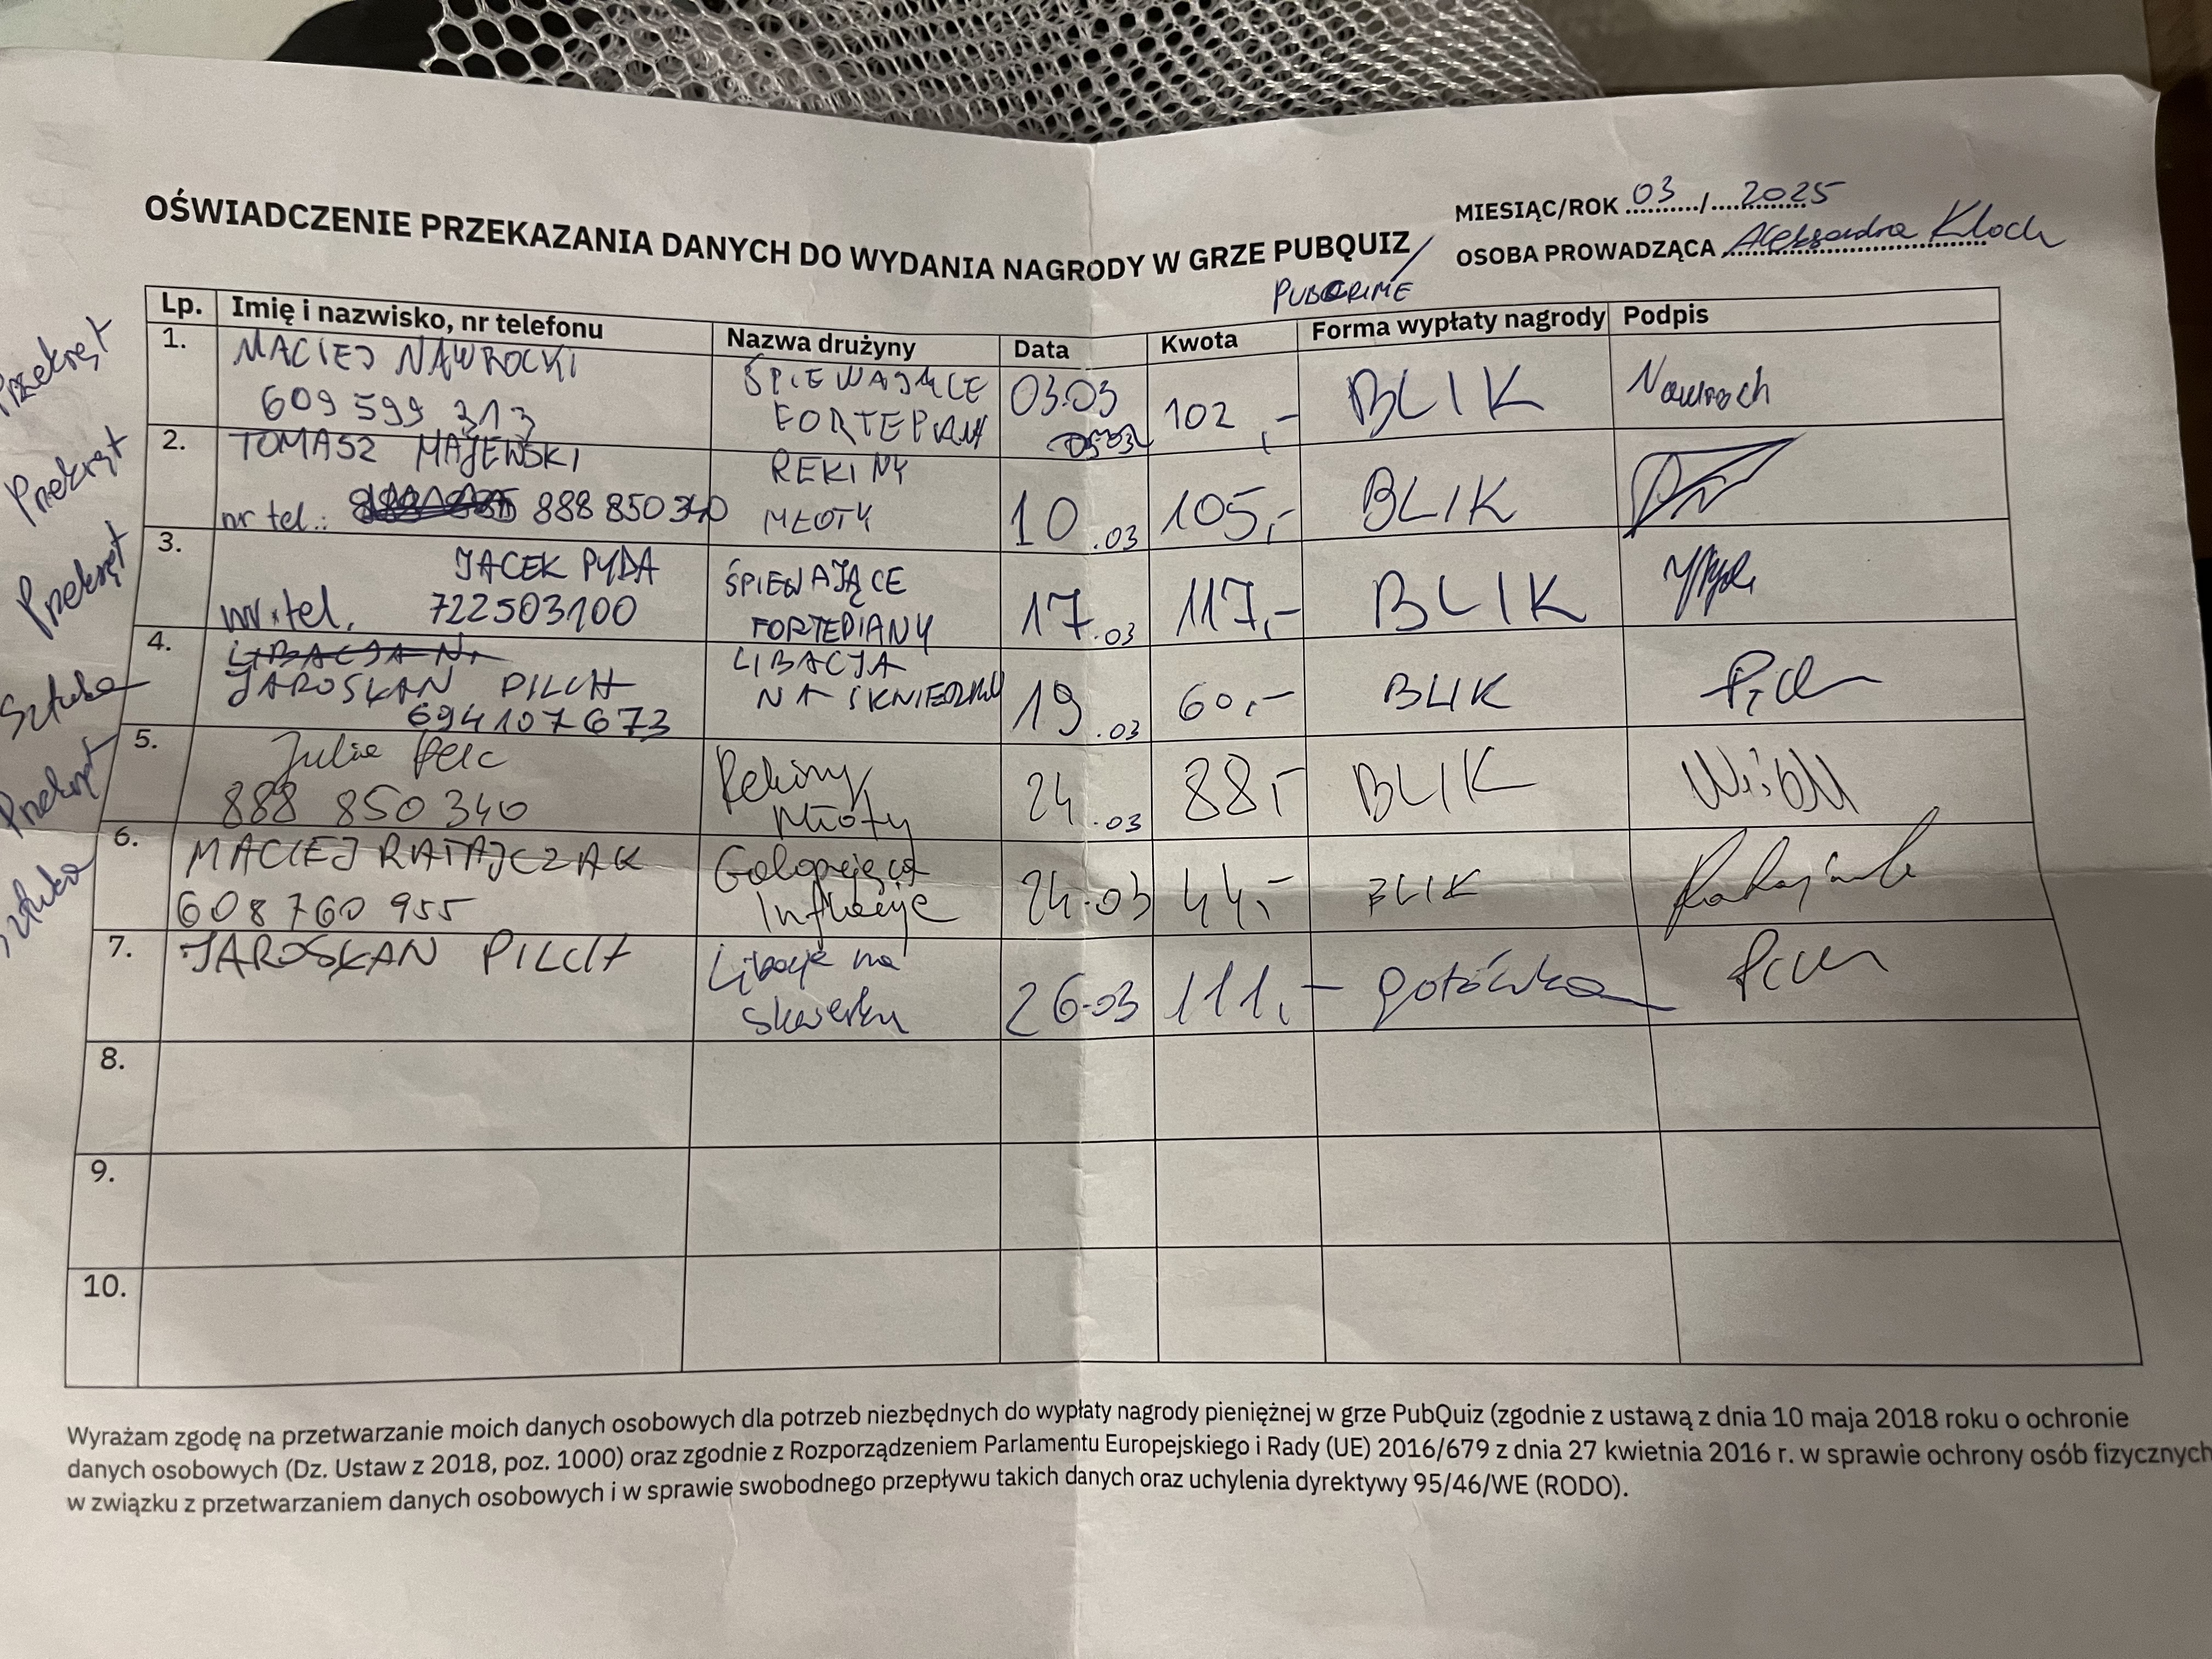 OŚWIADCZENIE PRZEKAZANIA DANYCH DO WYDANIA NAGRODY W GRZE PUBQUIZ /
PUBCRIME
MIESIĄC/ROK 03 / 2025
OSOBA PROWADZĄCA Aleksandra Kloch
Lp. Imię i nazwisko, nr telefonu Nazwa drużyny Data Kwota Forma wypłaty nagrody Podpis
Przekręt 1. MACIEJ NAWROCKI ŚPIEWAJĄCE 03.03 102,- BLIK
609 599 313
Przekręt 2. TOMASZ MAJEWSKI REKINY 10.03 105,- BLIK
nr tel.: 888 850 340 MŁOTY
Przekręt 3. JACEK PYDA ŚPIEWAJĄCE 17.03 117,- BLIK
nr.tel. 722503100 FORTEPIANY
Sztuka 4. JAROSŁAN PILCH LIBACJA 19.03 60,- BLIK
694107673 NA
Przekręt 5. Julia Pelc Rekiny 24.03 88,- BLIK
888 850 340 Młoty
Sztuka 6. MACIEJ RATAJCZAK Galopująca 24.03 44,- BLIK
608 760 955 Inflacja
7. JAROSŁAN PILCH Libacja na 26.03 111,- gotówka
skwerku
8.
9.
10.
Wyrażam zgodę na przetwarzanie moich danych osobowych dla potrzeb niezbędnych do wypłaty nagrody pieniężnej w grze PubQuiz (zgodnie z ustawą z dnia 10 maja 2018 roku o ochronie
danych osobowych (Dz. Ustaw z 2018, poz. 1000) oraz zgodnie z Rozporządzeniem Parlamentu Europejskiego i Rady (UE) 2016/679 z dnia 27 kwietnia 2016 r. w sprawie ochrony osób fizycznych
w związku z przetwarzaniem danych osobowych i w sprawie swobodnego przepływu takich danych oraz uchylenia dyrektywy 95/46/WE (RODO).